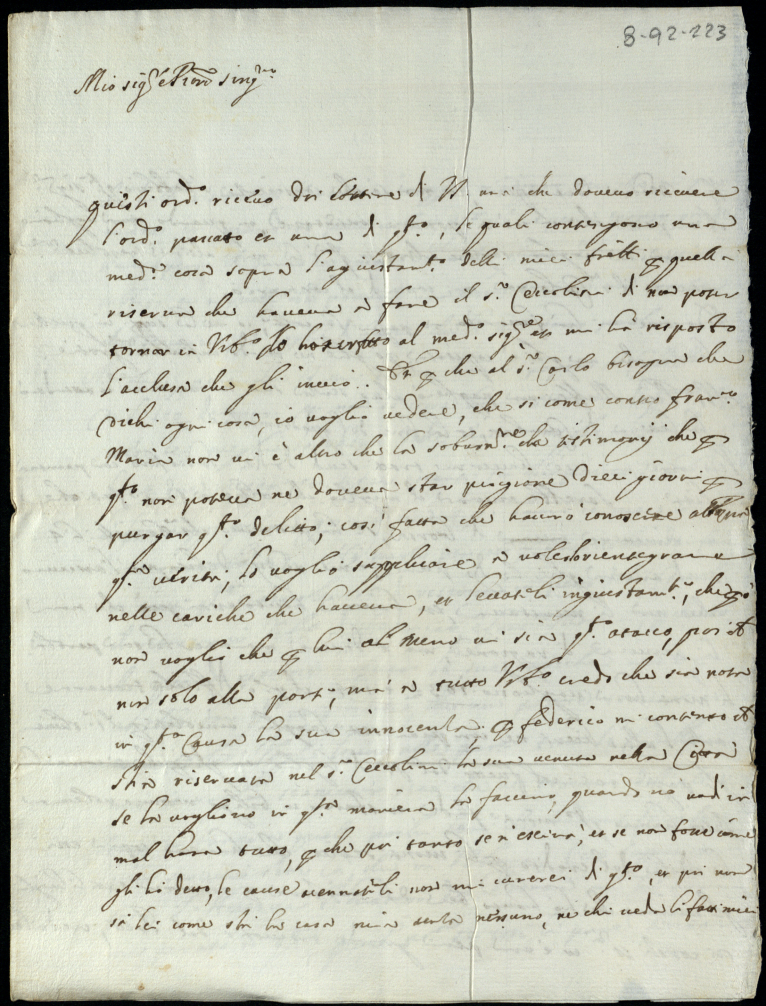 8-92-223
Mio sig.re e P'ron sing.re
questi ord.o ricevo due lettere di VS. una che dovevo ricevere
l'ord.o passato et una di q.to, le quali contengono una
med.a cosa sopra l'agiustam.to delli miei fr'elli, e quella
riserva che haveva à fare il s.r Ceccolini di non poter
tornar in Urb.o. Io ho scritto al med.o sig.re et mi hà risposto
l'acclusa che gli invio. che al s.r Carlo bisogna che
dichi ogni cosa, io voglio vedere, che si come contro Fran.co
Maria non vi è altro che la subornat.ne de testimonij che p
q.to non poteva ne doveva star prigione dieci giorni p
purgar q.to delitto; così fatto che havrò conoscere
q.ta verità, lo voglio supplicare à volerlo rientegrare
nelle cariche che haveva, et levateli ingiustam.te, che
non voglio che p lui al meno vi sia q.to atacco, poi ch
non solo alla port.e, mà à tutto Urb.o credo che sia nota
in q.ta causa la sua innocenza. p Federico mi contento ch
stia riservata nel s.r Ceccolini la sua venuta nella Città
se la vogliono in q.ta maniera la faccino, quando nò vadi in
mal hora tutto, p che poi tanto se n'escirà, et se non fosse come
gli hò detto, le cause acennateli non mi curerei di q.to, et poi non
sà lei come stà la casa mia senza nessuno, ne chi veda li fatti miei